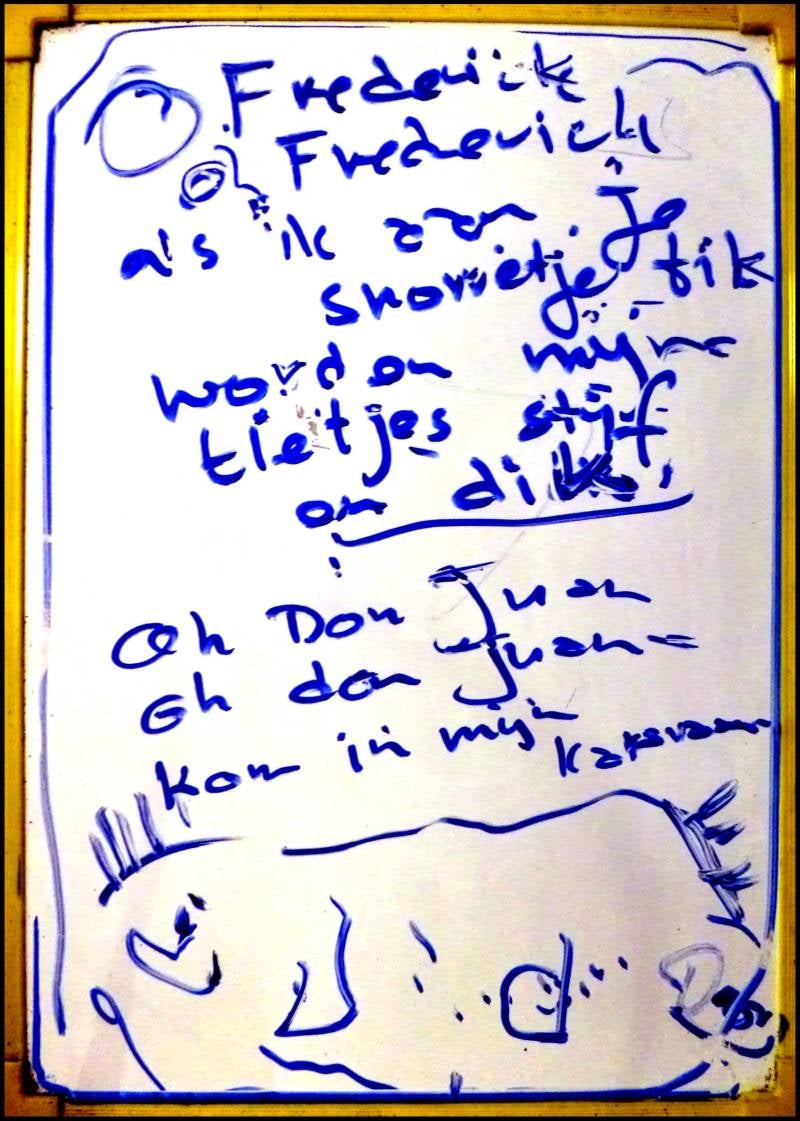 Frederick
Frederick
als ik aan je
snorretje tik
worden mijne
tietjes stijf
en dik!
Oh Don Juan
Oh don Juan
kom in mijn karavaan